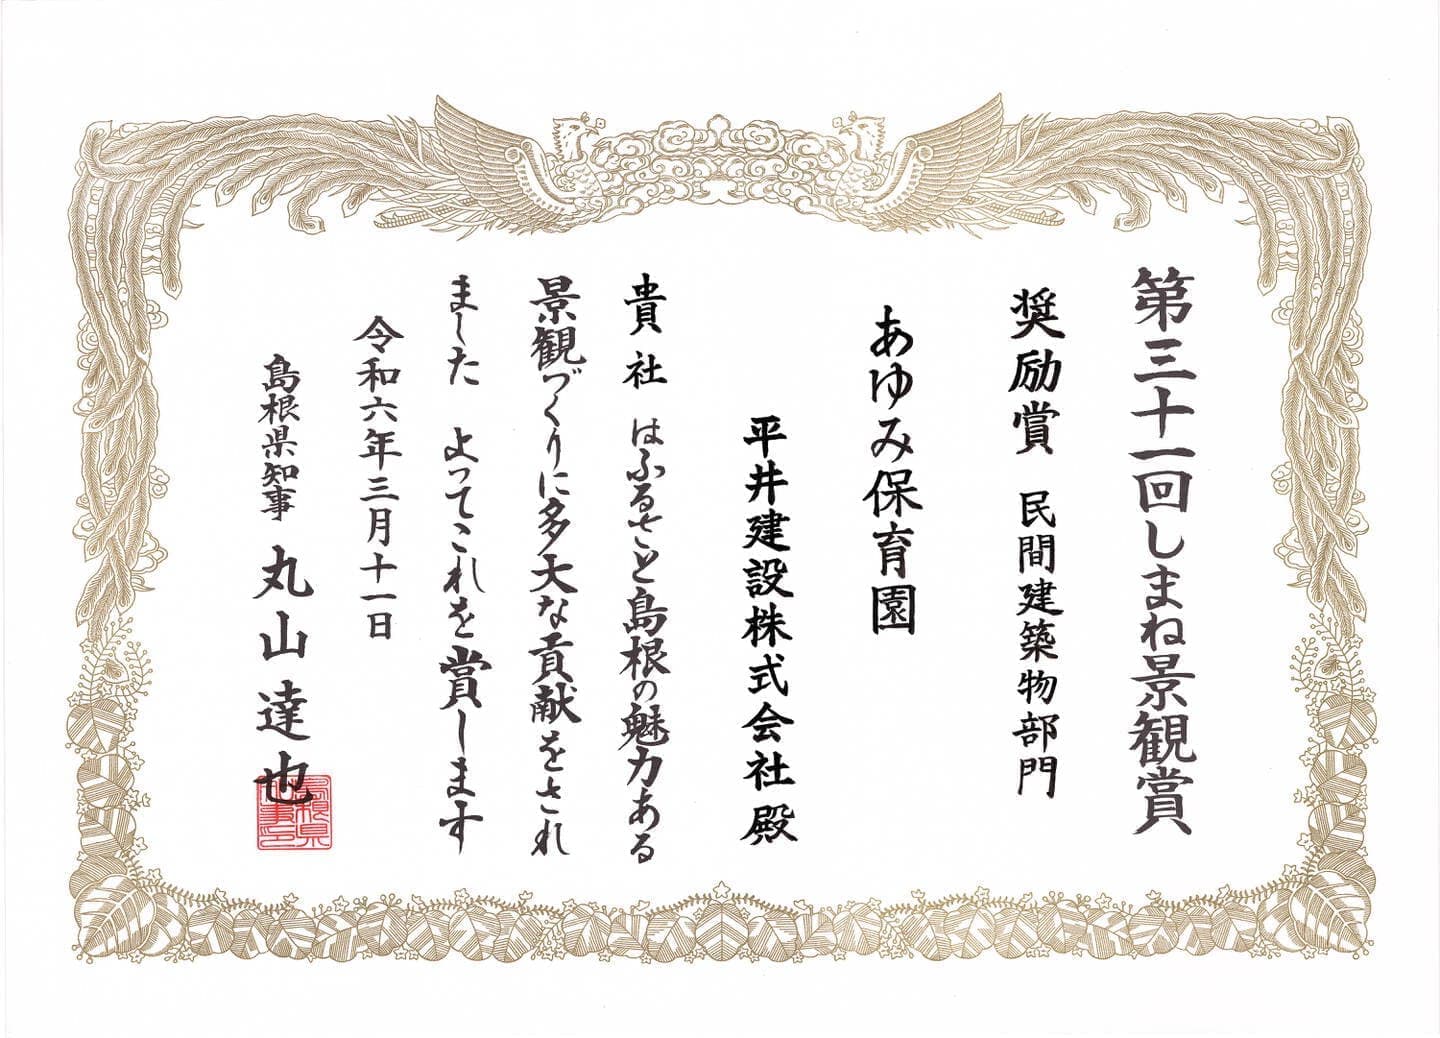 第三十一回しまね景観賞
奨励賞 民間建築物部門
あゆみ保育園
平井建設株式会社殿
貴社 はふるさと島根の魅力ある
景観づくりに多大な貢献をされ
ました よってこれを賞します
令和六年三月十一日
島根県知事 丸山達也